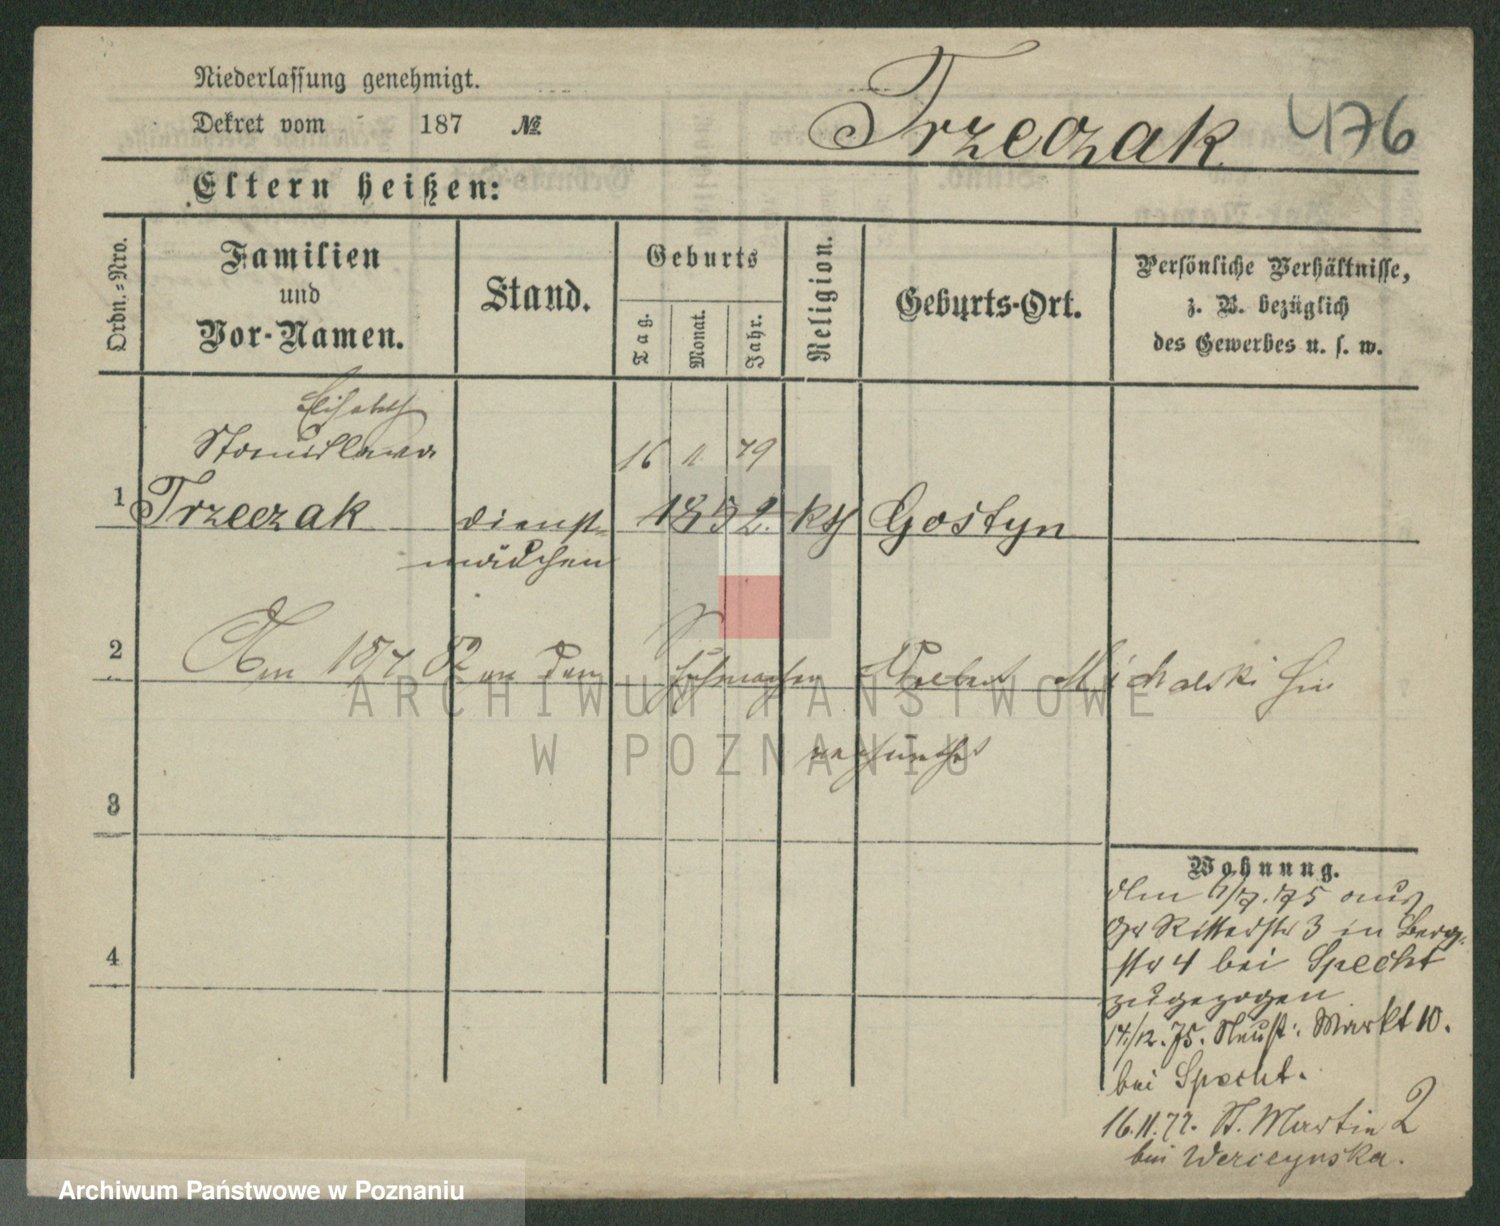 Niederlassung genehmigt.
Dekret vom 187 №
Trzeczak 476
Eltern heißen:
Ordn.=Nro.
Familien
und
Vor-Namen.
Stand.
Geburts
Tag.
Monat.
Jahr.
Religion.
Geburts-Ort.
Persönliche Verhältnisse,
z. B. bezüglich
des Gewerbes u. s. w.
Elisabeth
Stanislawa
16 11 79
1 Trzeczak dienst= 1852. kth Gostyn
mädchen
2 Am 15/7 82 an dem Schuhmacher Michalski hier
3
4
Wohnung.
Am 6/7.75 aus
gr Ritterstr 3 in Berg-
str 4 bei Specht
zugezogen
14/12.75. Neust: Markt 10.
bei Specht.
16.11.77. St. Martin 2
bei
ARCHIWUM PAŃSTWOWE
W POZNANIU
Archiwum Państwowe w Poznaniu